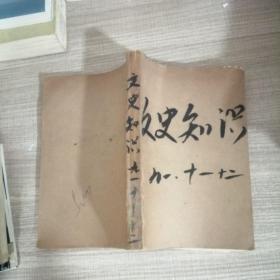 文史知识
九一.十一十二
文史知识 九一 十一 十二